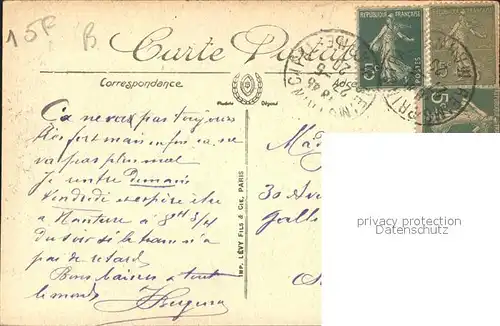 15F
B
Carte Postale
REPUBLIQUE FRANÇAISE
POSTES
Correspondance
Modèle Déposé
Ça ne va pas toujours
très fort mais enfin ça ne
va pas plus mal
Je rentre Demain
Vendredi et espère être
à Nanterre à 8H 3/4
du soir si le tram n'a
pas de retard
Bons baisers à tout
le monde
IMP. LÉVY FILS & CIE, PARIS
30 Av
privacy protection
Datenschutz